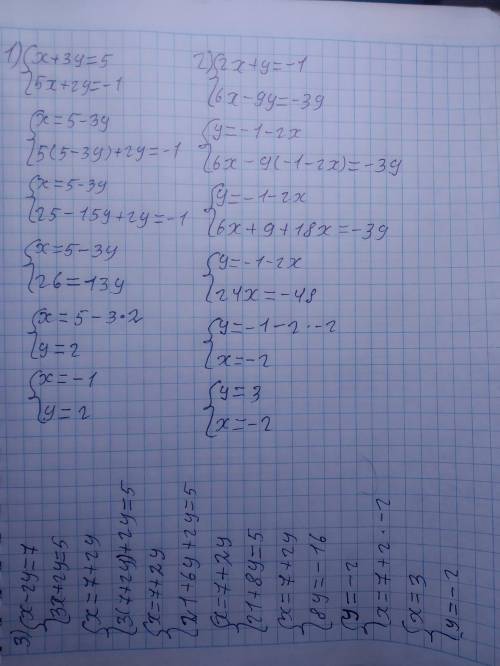 1) { x+3y=5
5x+2y=-1
{ x=5-3y
5(5-3y)+2y=-1
{ x=5-3y
25-15y+2y=-1
{ x=5-3y
26=13y
{ x=5-3·2
y=2
{ x=-1
y=2
2) { 2x+y=-1
6x-9y=-39
{ y=-1-2x
6x-9(-1-2x)=-39
{ y=-1-2x
6x+9+18x=-39
{ y=-1-2x
24x=-48
{ y=-1-2·-2
x=-2
{ y=3
x=-2
3) { x-2y=7
3x+2y=5
{ x=7+2y
3(7+2y)+2y=5
{ x=7+2y
21+6y+2y=5
{ x=7+2y
21+8y=5
{ x=7+2y
8y=-16
{ y=-2
x=7+2·-2
{ x=3
y=-2